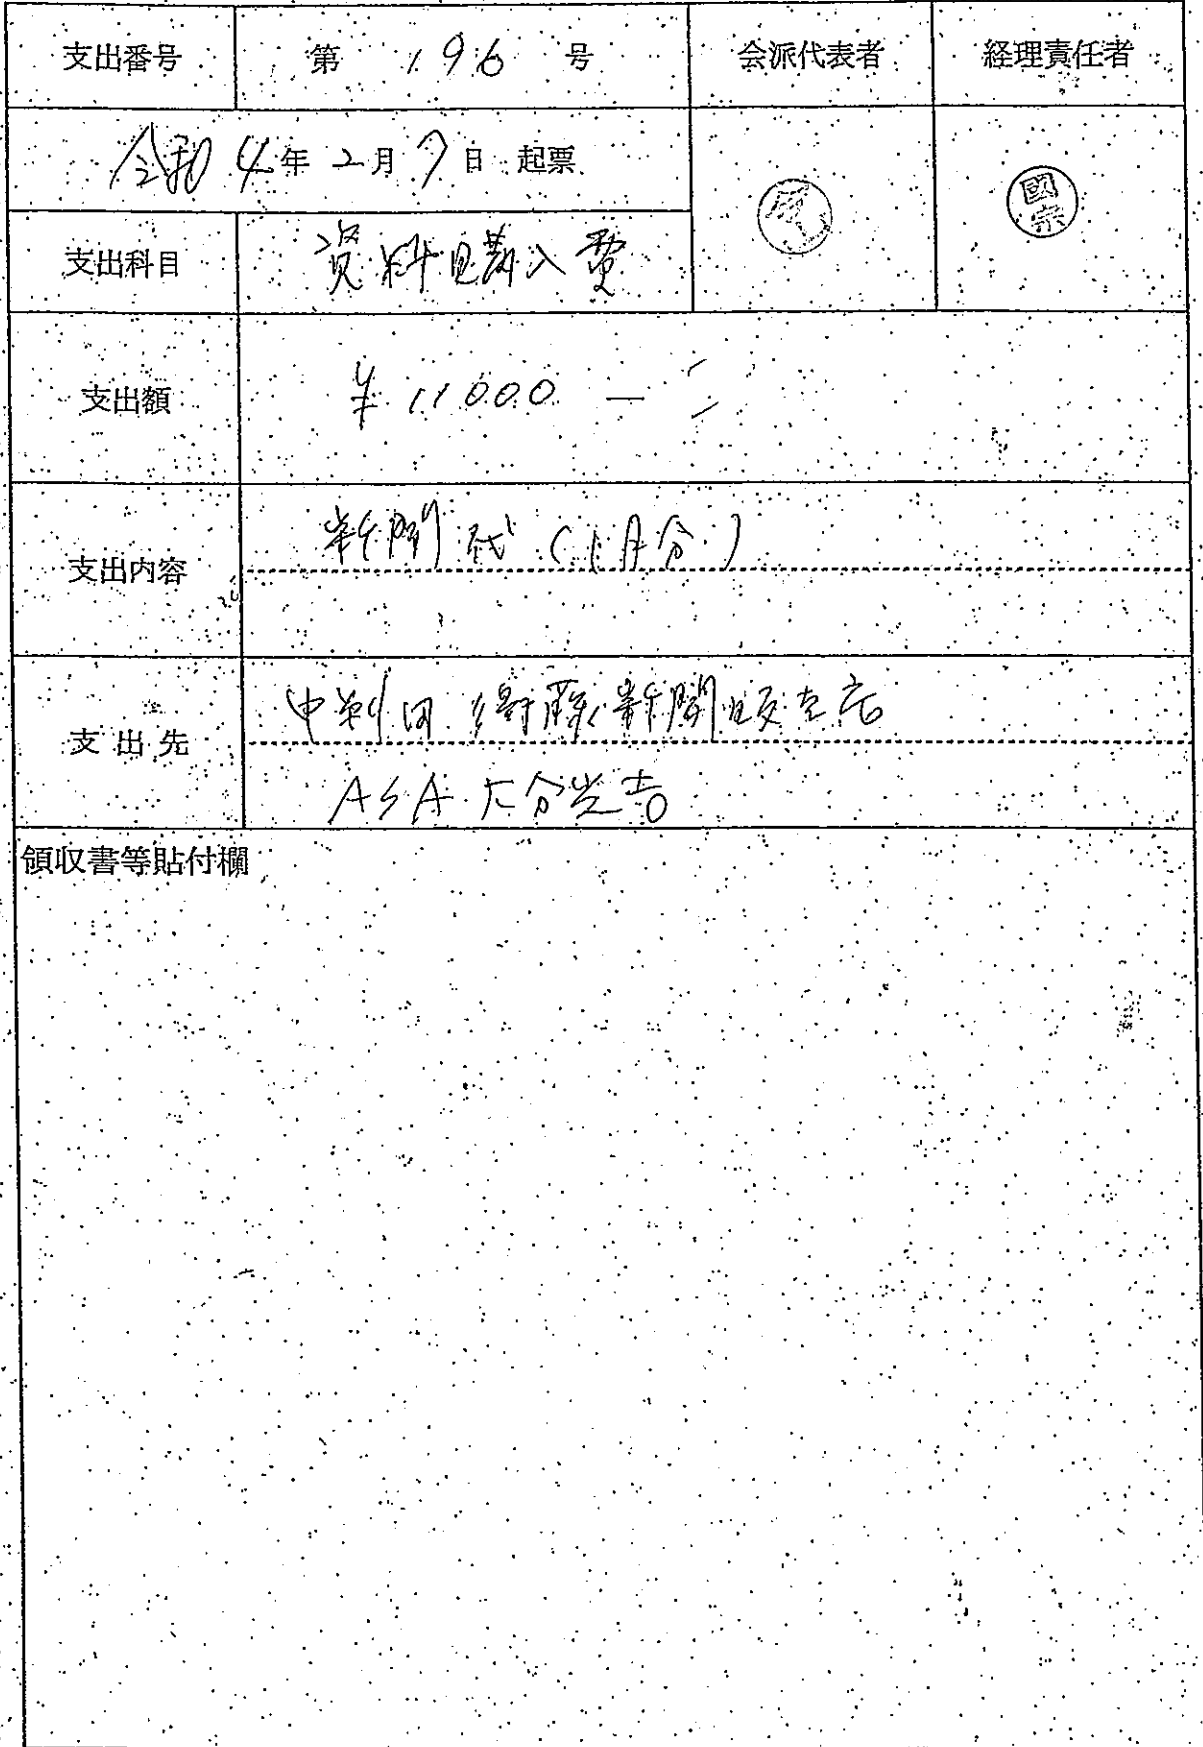 支出番号 第 196 号 会派代表者 経理責任者
令和 4 年 2 月 7 日 起票
國宗
支出科目 資料購入費
支出額 ¥11000 —
支出内容 新聞代（1月分）
支出先 中判田 衛藤新聞販売店
ASA大分光吉
領収書等貼付欄